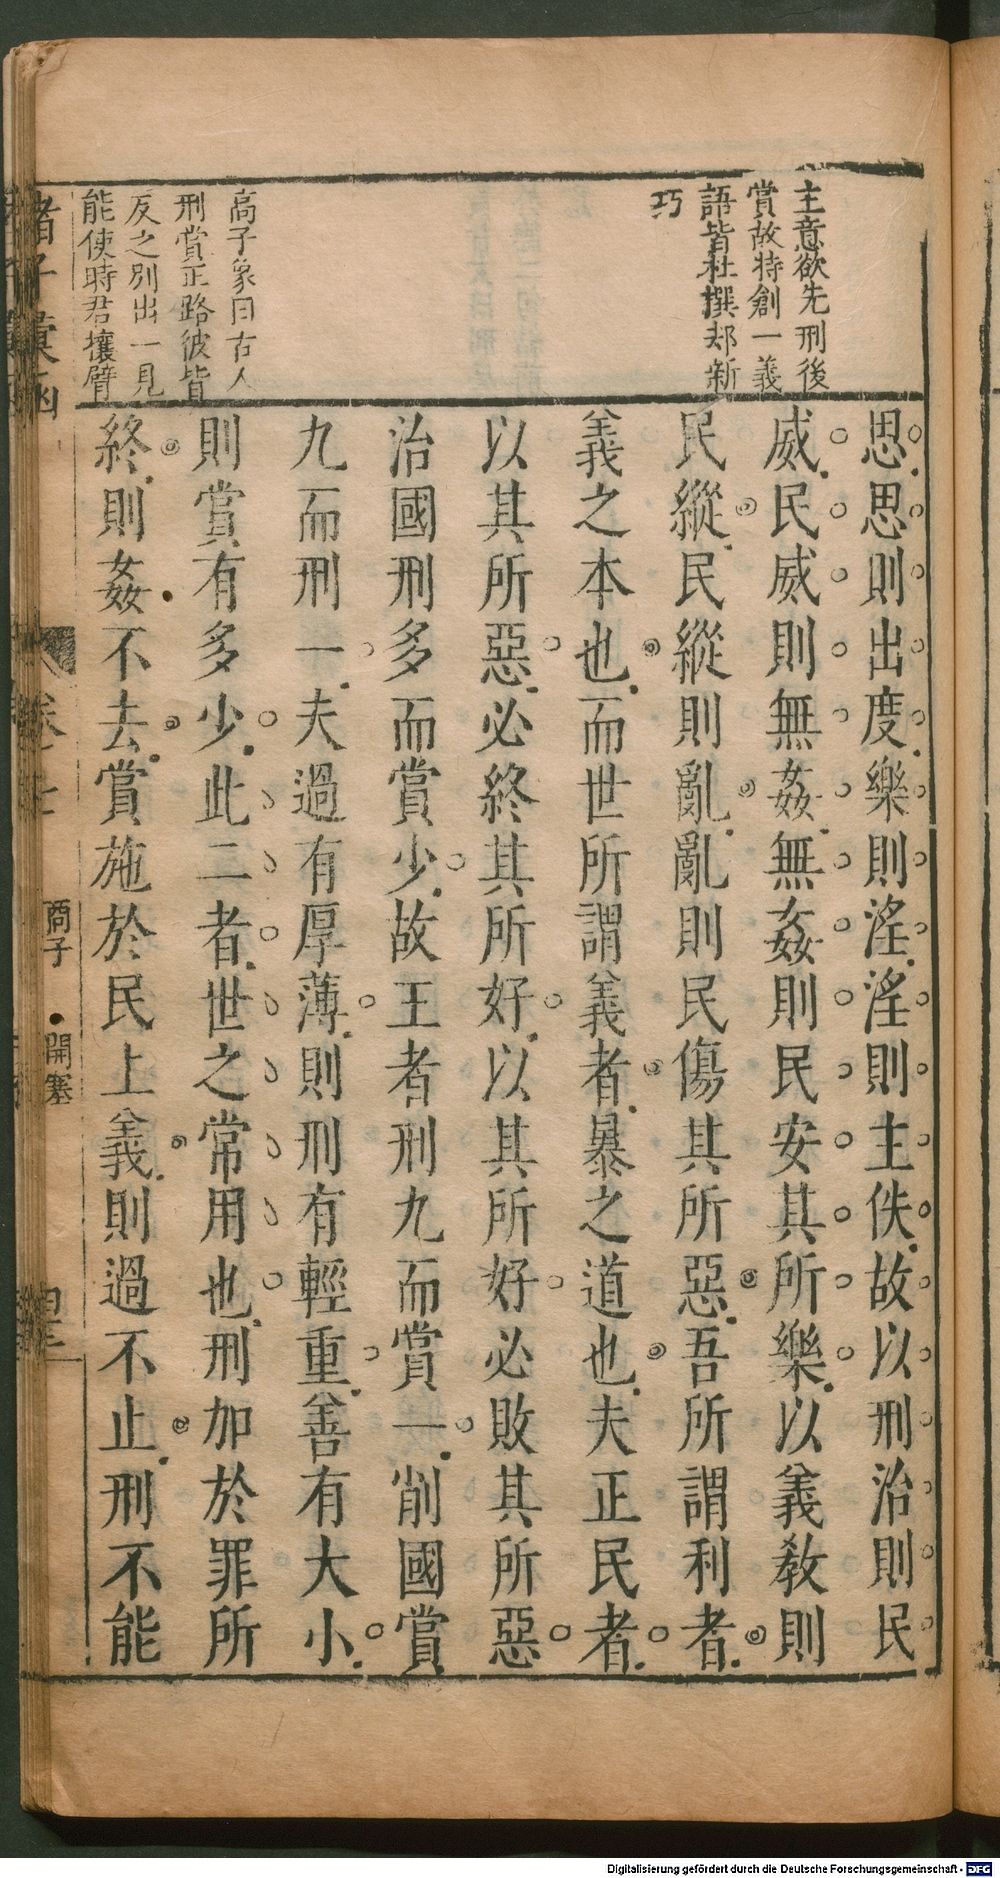 主意欲先刑後
賞故特創一義
語皆杜撰却新
巧
高子象曰古人
刑賞正路彼皆
反之別出一見
能使時君攘臂
思思則出度樂則淫淫則主佚故以刑治則民
威民威則無姦無姦則民安其所樂以義教則
民縱民縱則亂亂則民傷其所惡吾所謂利者
義之本也而世所謂義者暴之道也夫正民者
以其所惡必終其所好以其所好必敗其所惡
治國刑多而賞少故王者刑九而賞一削國賞
九而刑一夫過有厚薄則刑有輕重善有大小
則賞有多少此二者世之常用也刑加於罪所
終則姦不去賞施於民上義則過不止刑不能
諸子彙函
商子
開塞
Digitalisierung gefördert durch die Deutsche Forschungsgemeinschaft - DFG